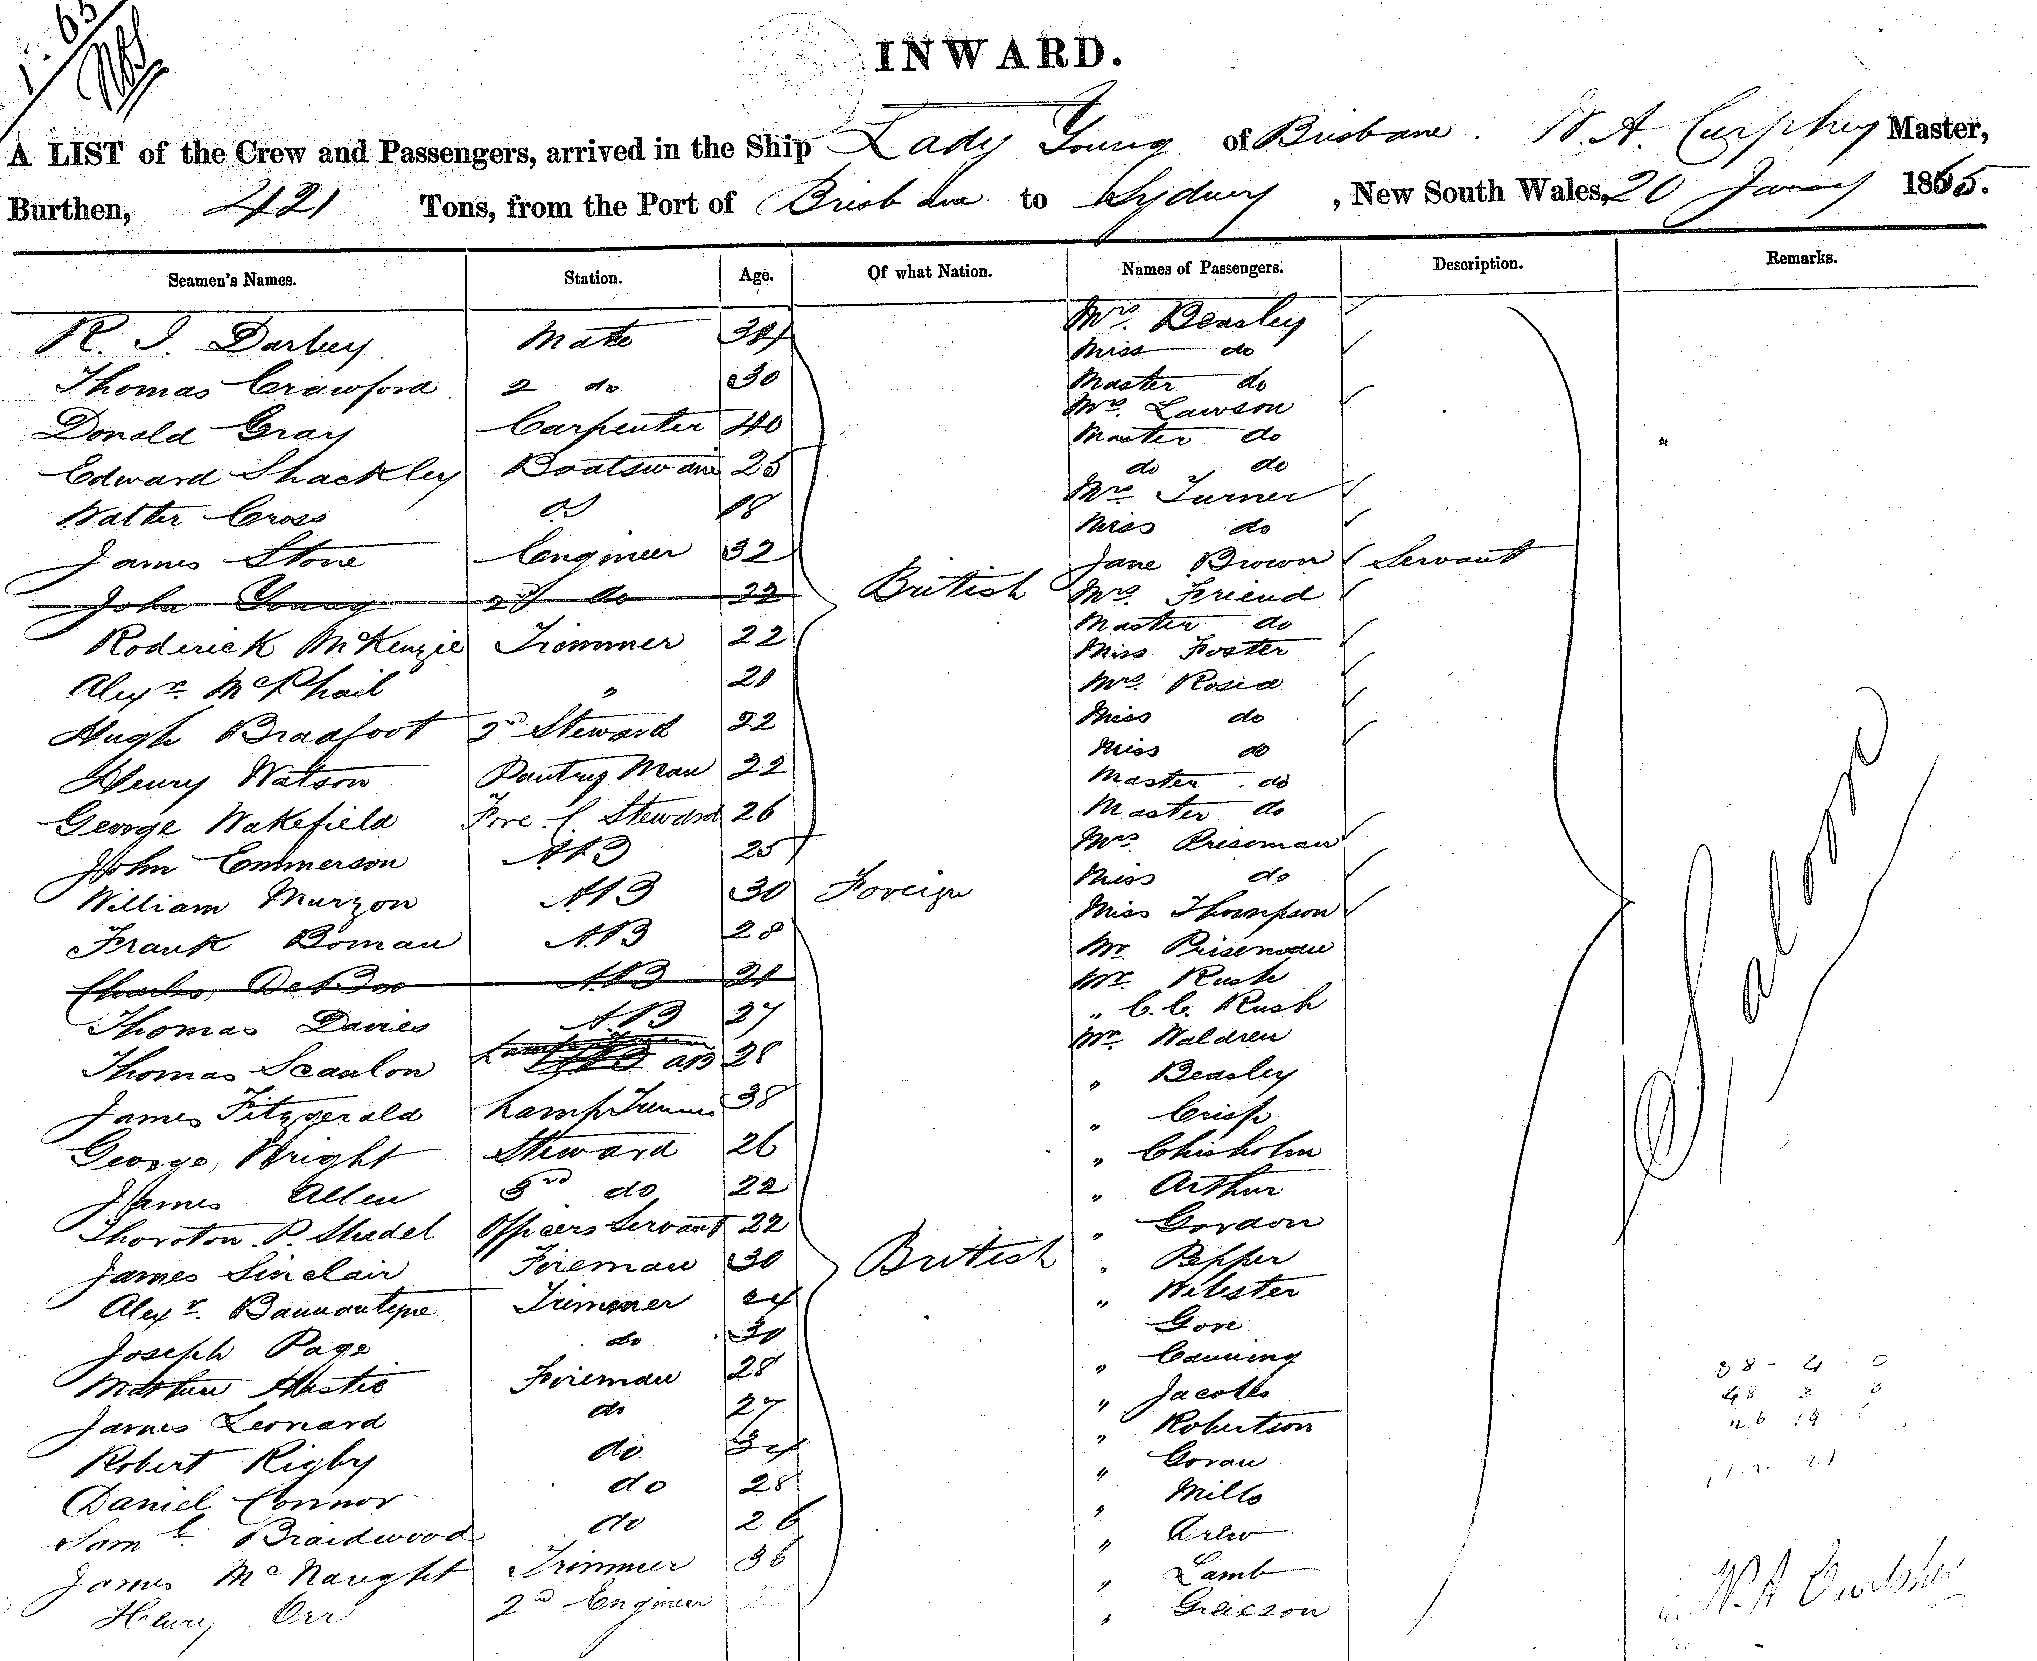 1. 65
INWARD.
A LIST of the Crew and Passengers, arrived in the Ship Lady Young of Brisbane. W. A. Curphey Master,
Burthen, 421 Tons, from the Port of Brisbane to Sydney, New South Wales, 20 Jany 1865.
Seamen's Names. Station. Age. Of what Nation. Names of Passengers. Description. Remarks.
R. J. Darbey Mate Mrs. Beasley
Miss do
Thomas Crawford 2 do 30 Master do
Mrs. Lawson
Donald Gray Carpenter 40 Master do
Edward Shackley Boatswain 25 do do
Mrs Turner
Walter Cross 18 Miss do
James Stone Engineer 32 Jane Brown Servant
John Young 2d do 22 British Mrs. Friend
Master do
Roderick McKenzie Trimmer 22 Miss Foster
Alexr. McPhail " 21 Mrs.
Hugh Bradfoot 2nd Steward 22 Miss do
Miss do
Henry Watson Pantry Man 22 Master do
George Wakefield Fore C Steward 26 Master do
John Emmerson AB 25 Mrs Priseman
William Murzon AB 30 Foreign Miss do
Miss Thompson
Frank Boman AB 28 Mr Priseman
Charles AB 21 Mr. Rush
" C. C. Rush
Thomas Davies AB 27 Mr. Waldren
Thomas Scanlon AB 28 " Beasley
James Fitzgerald Lamp Trimmer 38 " Crisp
George Wright Steward 26 " Chisholm
James Allen 3rd do 22 " Arthur
Thoroton P. Officers Servant 22 " Gordon
James Sinclair Fireman 30 British " Pepper
Alexr. Bannantyne Trimmer 24 " Webster
Joseph Page do 30 Gore
" Canning
Matthew Hastie Fireman 28 " Jacobs
James Leonard do 27 " Robertson
Robert Rigby do 34 " Goran
Daniel Connor do 28 " Mills
Saml. Braidwood do 26 "
James McNaught Trimmer 36 " Lamb
Henry Orr 2nd Engineer " Grierson
Saloon
W. A. Curphey